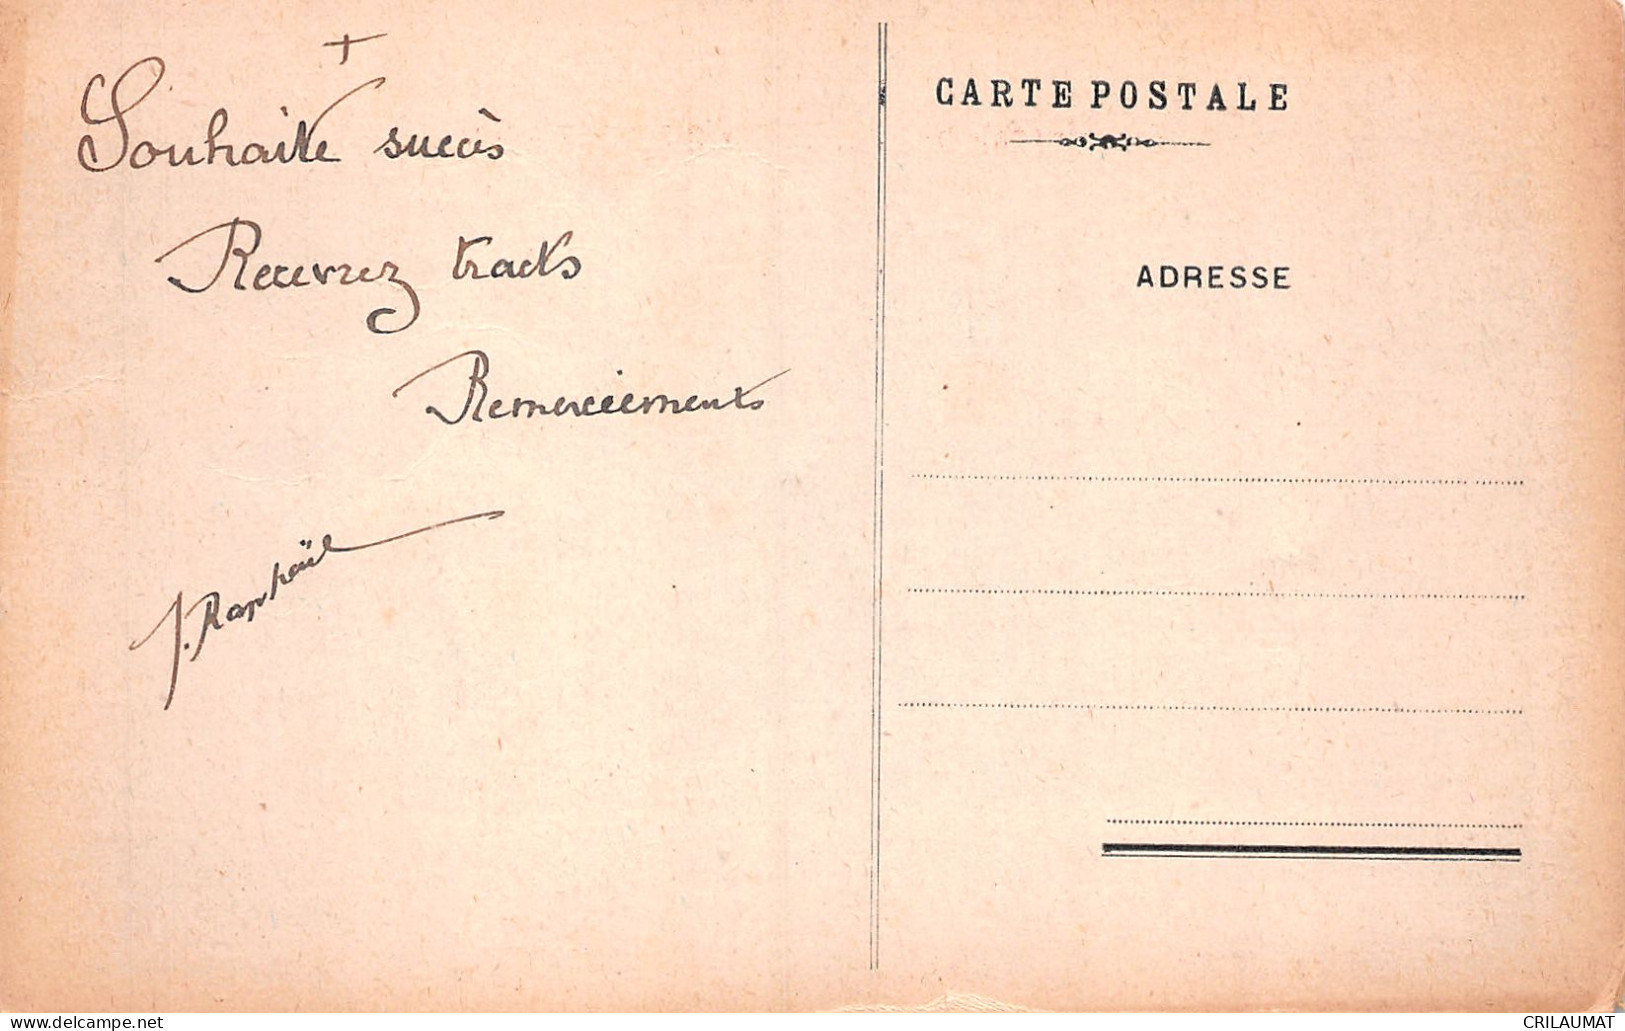 +
Souhaite succès
Recevrez tracts
Remerciements
J. Raphaël
CARTE POSTALE
ADRESSE
CRILAUMAT